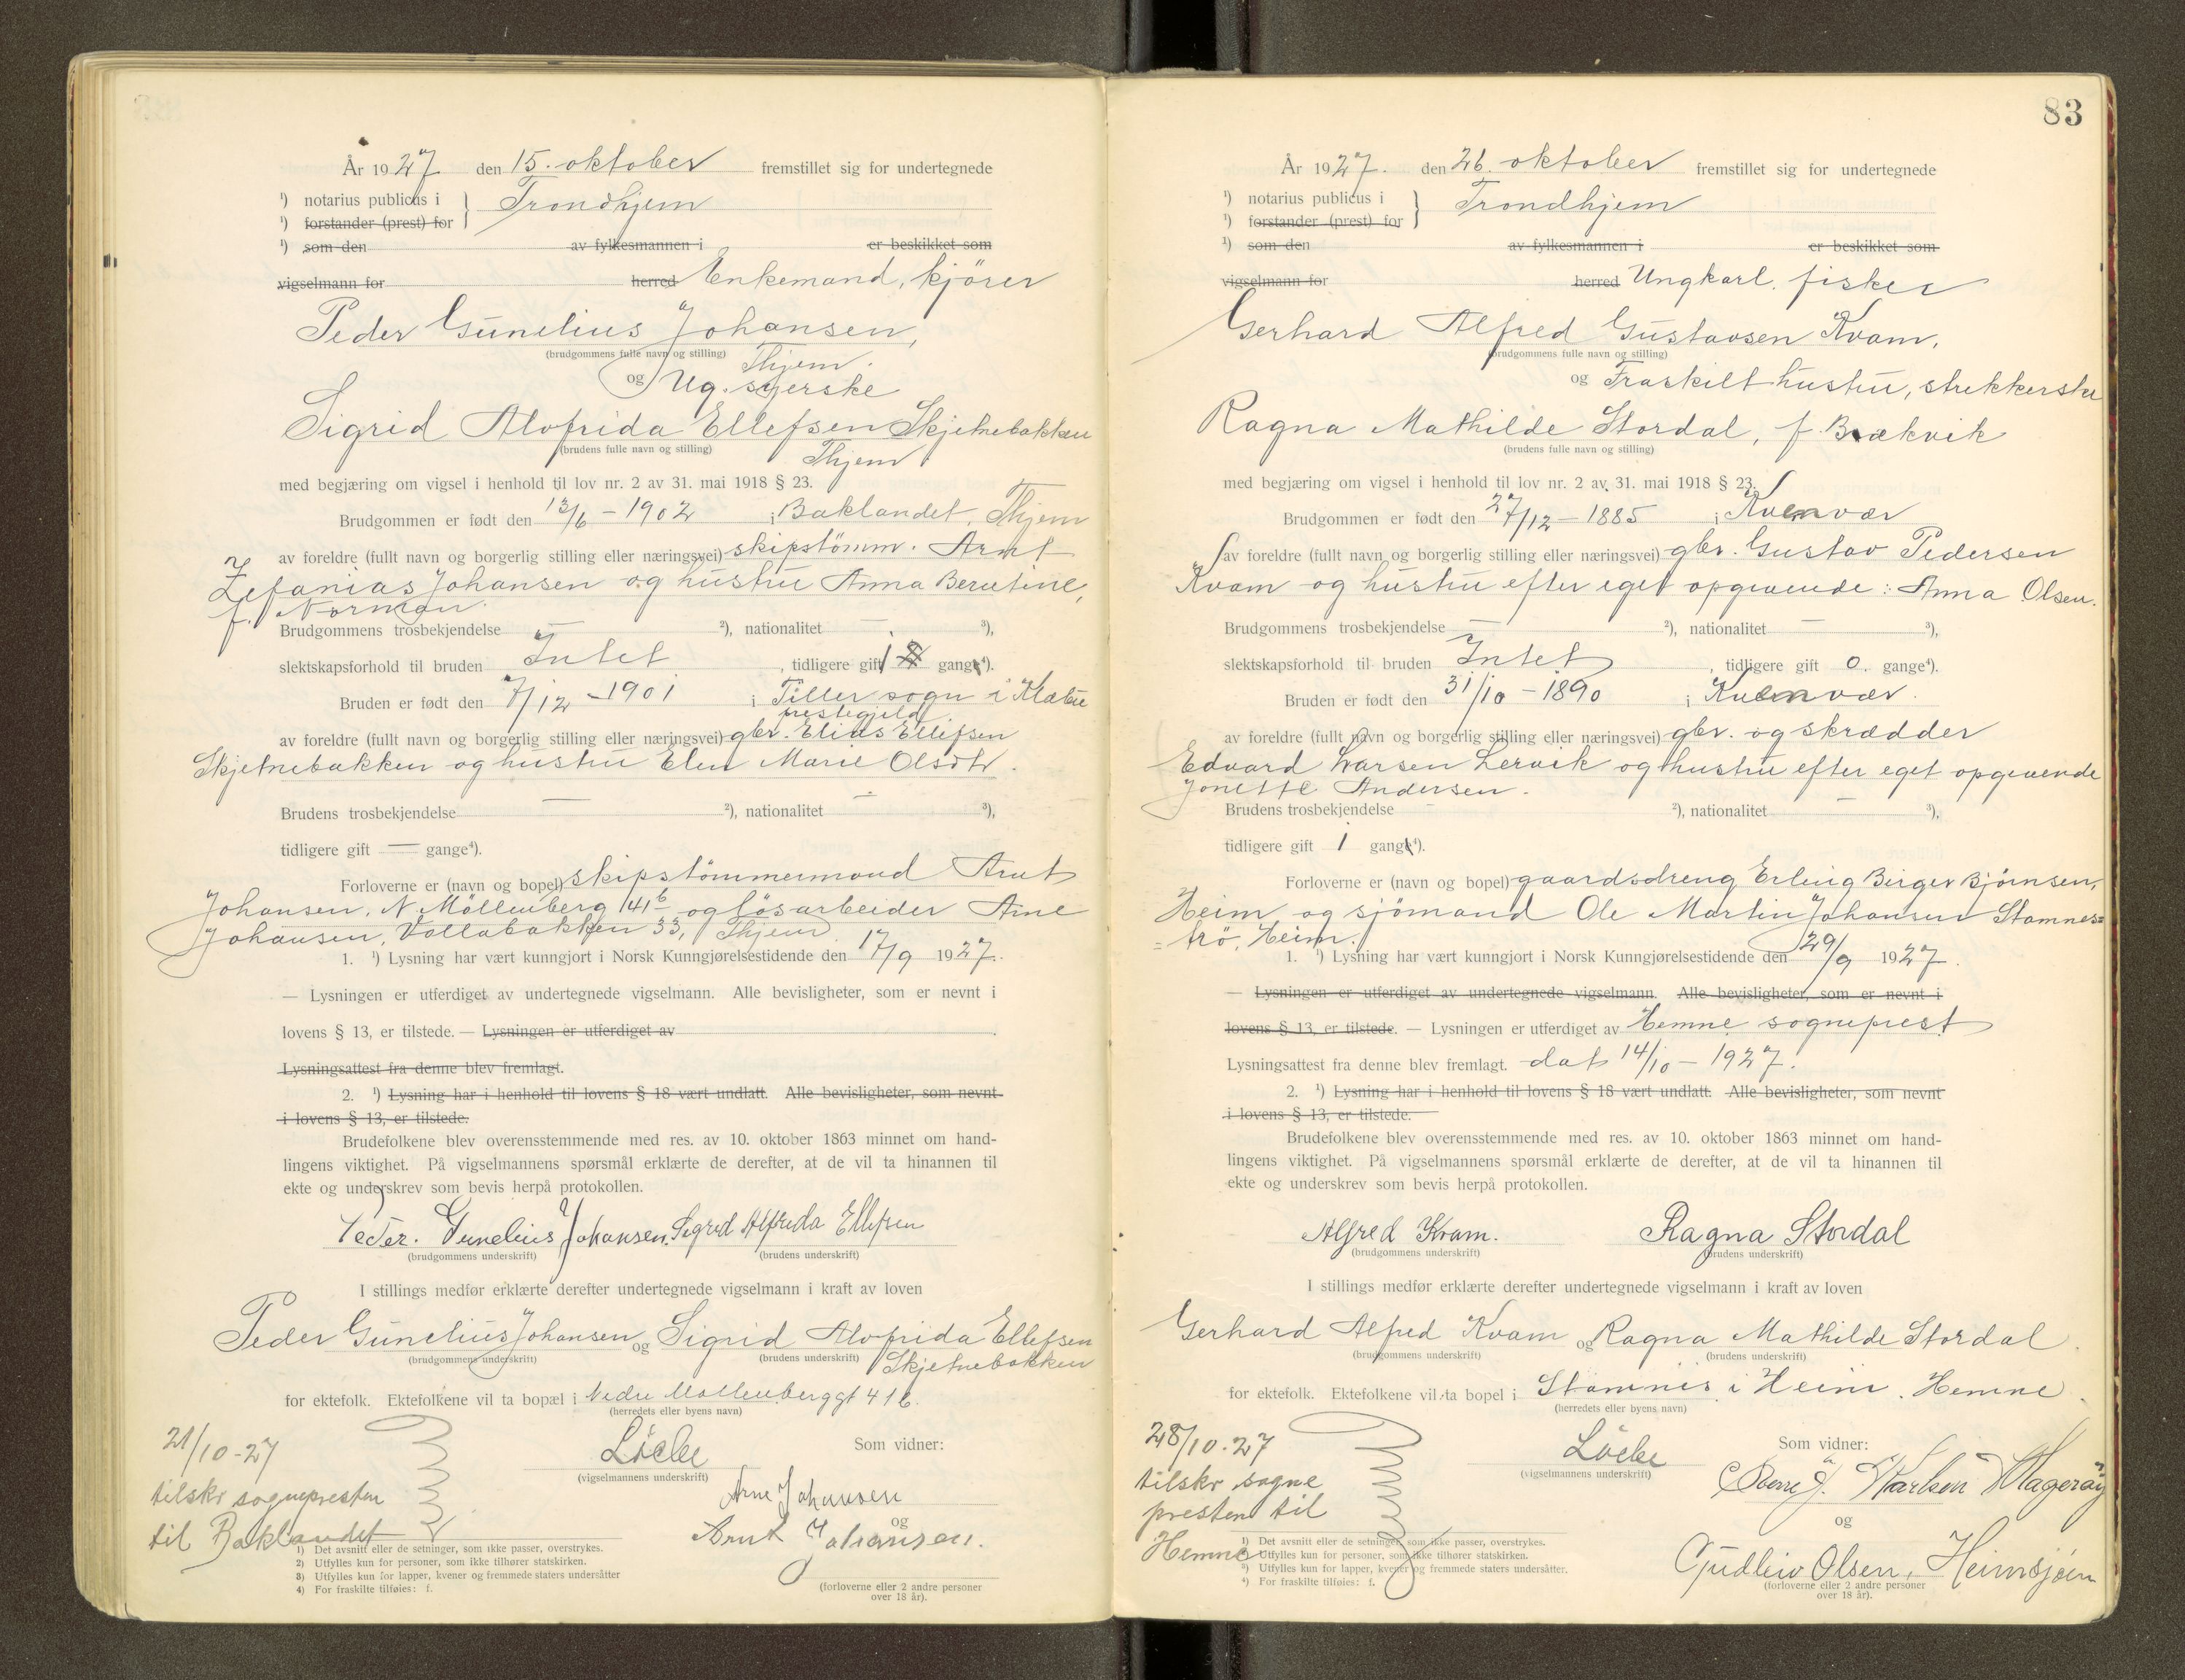 År 1927 den 15. oktober fremstillet sig for undertegnede
¹) notarius publicus i
¹) forstander (prest) for
Trondhjem
¹) som den av fylkesmannen i er beskikket som
vigselmann for herred Enkemand, kjörer
Peder Gunelius Johansen,
(brudgommens fulle navn og stilling) Thjem.
og Ug. syerske
Sigrid Alvfrida Ellefsen Skjetnebakken
(brudens fulle navn og stilling) Thjem
med begjæring om vigsel i henhold til lov nr. 2 av 31. mai 1918 § 23.
Brudgommen er født den 13/6 - 1902 i Baklandet, Thjem
av foreldre (fullt navn og borgerlig stilling eller næringsvei) skipstömm. Arnt
Zefanias Johansen og hustru Anna Berntine,
f. Norman.
Brudgommens trosbekjendelse — ²), nationalitet — ³),
slektskapsforhold til bruden Intet, tidligere gift 1 gang⁴).
Bruden er født den 7/12 - 1901 i Tiller sogn i Klæbu
prestegjeld
av foreldre (fullt navn og borgerlig stilling eller næringsvei) gbr. Elias Ellefsen
Skjetnebakken og hustru Elen Marie Olsdtr.
Brudens trosbekjendelse — ²), nationalitet — ³),
tidligere gift — gange⁴).
Forloverne er (navn og bopel) skipstömmermand Arnt
Johansen, N. Möllenberg 41b og løsarbeider Arne
Johansen, Vollabakken 33, Thjem
1. ¹) Lysning har vært kunngjort i Norsk Kunngjørelsestidende den 17/9 1927.
— Lysningen er utferdiget av undertegnede vigselmann. Alle bevisligheter, som er nevnt i
lovens § 13, er tilstede. — Lysningen er utferdiget av
Lysningsattest fra denne blev fremlagt.
2. ¹) Lysning har i henhold til lovens § 18 vært undlatt. Alle bevisligheter, som nevnt
i lovens § 13, er tilstede.
Brudefolkene blev overensstemmende med res. av 10. oktober 1863 minnet om hand-
lingens viktighet. På vigselmannens spørsmål erklærte de derefter, at de vil ta hinannen til
ekte og underskrev som bevis herpå protokollen.
Peder. Gunelius Johansen. Sigrid Alfrida Ellefsen
(brudgommens underskrift) (brudens underskrift)
I stillings medfør erklærte derefter undertegnede vigselmann i kraft av loven
Peder Gunelius Johansen og Sigrid Alvfrida Ellefsen
(brudgommens underskrift) (brudens underskrift) Skjetnebakken
for ektefolk. Ektefolkene vil ta bopæl i Nedre Möllenberggt 41b.
(herredets eller byens navn)
21/10-27
tilskr sognepresten
til Baklandet
(vigselmannens underskrift)
Som vidner:
Arne Johansen
og
Arnt Johansen.
(forloverne eller 2 andre personer
over 18 år).
1) Det avsnitt eller de setninger, som ikke passer, overstrykes.
2) Utfylles kun for personer, som ikke tilhører statskirken.
3) Utfylles kun for lapper, kvener og fremmede staters undersåtter
4) For fraskilte tilføies: f.
83
År 1927. den 26. oktober fremstillet sig for undertegnede
¹) notarius publicus i
¹) forstander (prest) for
Trondhjem
¹) som den av fylkesmannen i er beskikket som
vigselmann for herred Ungkarl. fisker
Gerhard Alfred Gustavsen Kvam,
(brudgommens fulle navn og stilling)
og Fraskilt hustru, strikkerske
Ragna Mathilde Stordal, f. Brækvik
(brudens fulle navn og stilling)
med begjæring om vigsel i henhold til lov nr. 2 av 31. mai 1918 § 23.
Brudgommen er født den 27/12 - 1885 i Kvenvær
av foreldre (fullt navn og borgerlig stilling eller næringsvei) gbr. Gustav Pedersen
Kvam og hustru efter eget opgivende: Anna Olsen.
Brudgommens trosbekjendelse — ²), nationalitet — ³),
slektskapsforhold til bruden Intet, tidligere gift 0. gange⁴).
Bruden er født den 31/10 - 1890 i Kvenvær.
av foreldre (fullt navn og borgerlig stilling eller næringsvei) gbr. og skrædder
Edvard Larsen Lervik og hustru efter eget opgivende
Jonette Andersen.
Brudens trosbekjendelse — ²), nationalitet — ³),
tidligere gift 1 gang⁴).
Forloverne er (navn og bopel) gaardsdreng Erling Birger Bjørnsen,
Heim og sjömand Ole Martin Johansen Stamnes=
=trö, Heim.
1. ¹) Lysning har vært kunngjort i Norsk Kunngjørelsestidende den 29/9 1927.
— Lysningen er utferdiget av undertegnede vigselmann. Alle bevisligheter, som er nevnt i
lovens § 13, er tilstede. — Lysningen er utferdiget av Hemne sogneprest
Lysningsattest fra denne blev fremlagt. dat 14/10 - 1927.
2. ¹) Lysning har i henhold til lovens § 18 vært undlatt. Alle bevisligheter, som nevnt
i lovens § 13, er tilstede.
Brudefolkene blev overensstemmende med res. av 10. oktober 1863 minnet om hand-
lingens viktighet. På vigselmannens spørsmål erklærte de derefter, at de vil ta hinannen til
ekte og underskrev som bevis herpå protokollen.
Alfred Kvam. Ragna Stordal
(brudgommens underskrift) (brudens underskrift)
I stillings medfør erklærte derefter undertegnede vigselmann i kraft av loven
Gerhard Alfred Kvam og Ragna Mathilde Stordal.
(brudgommens underskrift) (brudens underskrift)
for ektefolk. Ektefolkene vil ta bopel i Stamnes i Heim. Hemne.
(herredets eller byens navn)
28/10-27
tilskr sogne
presten til
Hemne
(vigselmannens underskrift)
Som vidner:
Karlsen Magerøy
og
Gudleiv Olsen, Heimsjøen
(forloverne eller 2 andre personer
over 18 år).
¹) Det avsnitt eller de setninger, som ikke passer, overstrykes.
²) Utfylles kun for personer, som ikke tilhører statskirken.
³) Utfylles kun for lapper, kvener og fremmede staters undersåtter.
⁴) For fraskilte tilføies: f.